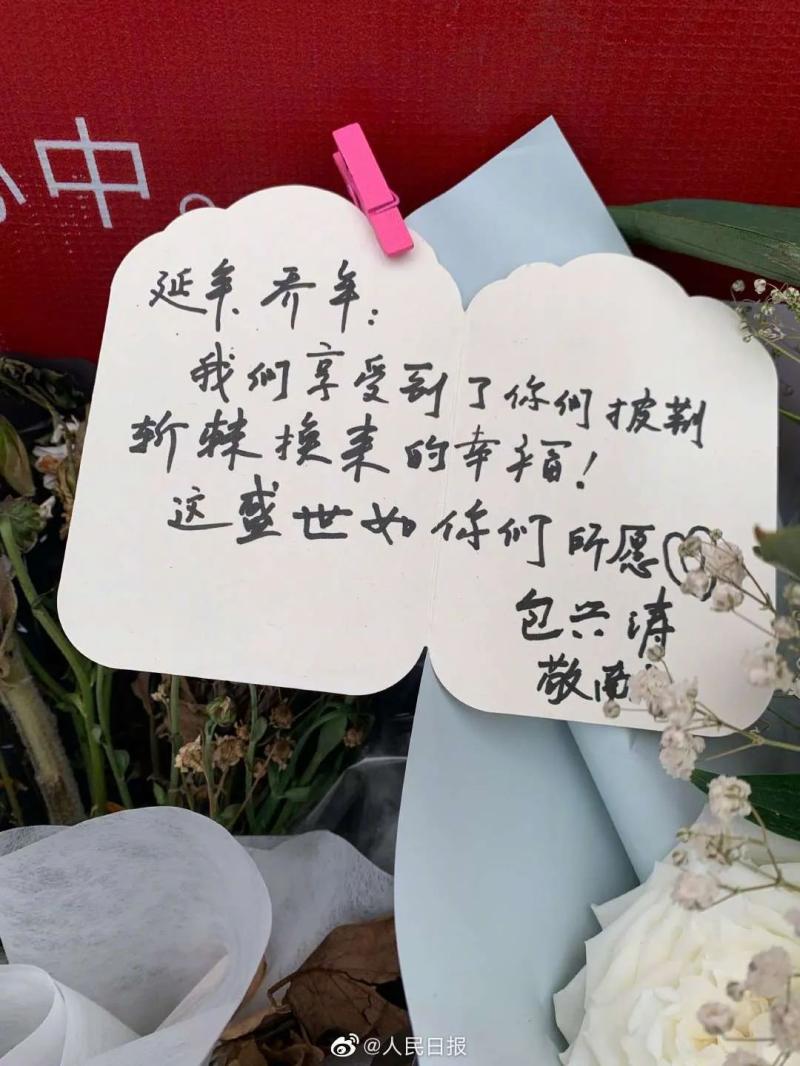 中。
延年、乔年：
我们享受到了你们披荆
斩棘换来的幸福！
这盛世如你们所愿♡
包兴涛
敬
@人民日报